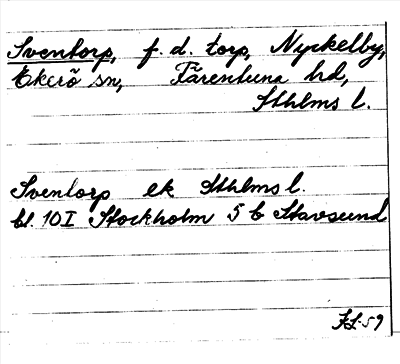 Sventorp, f. d. torp, Nyckelby,
Ekerö sn, Färentuna hd,
Sthlms l.
Sventorp ek Sthlms l.
bl. 10I Stockholm 5 b Stavsund
KL-59